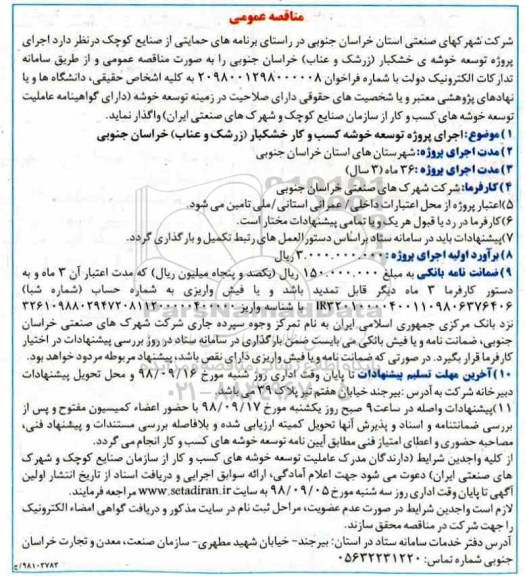 مناقصه عمومی
شرکت شهرکهای صنعتی استان خراسان جنوبی در راستای برنامه های حمایتی از صنایع کوچک درنظر دارد اجرای
پروژه توسعه خوشه ی خشکبار (زرشک و عناب) خراسان جنوبی را به صورت مناقصه عمومی و از طریق سامانه
تدارکات الکترونیک دولت با شماره فراخوان ۲۰۹۸۰۰۱۲۹۸۰۰۰۰۰۸ به کلیه اشخاص حقیقی، دانشگاه ها و یا
نهادهای پژوهشی معتبر و یا شخصیت های حقوقی دارای صلاحیت در زمینه توسعه خوشه (دارای گواهینامه عاملیت
توسعه خوشه های کسب و کار از سازمان صنایع کوچک و شهرک های صنعتی ایران) واگذار نماید.
۱)موضوع: اجرای پروژه توسعه خوشه کسب و کار خشکبار (زرشک و عناب) خراسان جنوبی
۲)مدت اجرای پروژه: شهرستان های استان خراسان جنوبی
۳)مدت اجرای پروژه: ۳۶ ماه (۳ سال)
۴)کارفرما: شرکت شهرک های صنعتی خراسان جنوبی
۵)اعتبار پروژه از محل اعتبارات داخلی/ عمرانی استانی/ملی تامین می شود.
۶)کارفرما در رد یا قبول هریک و یا تمامی پیشنهادات مختار است.
۷)پیشنهادات باید در سامانه ستاد براساس دستورالعمل های رتبط تکمیل و بارگذاری گردد.
۸)برآورد اولیه اجرای پروژه: ۳.۰۰۰.۰۰۰.۰۰۰ ریال
۹)ضمانت نامه بانکی به مبلغ ۱۵۰.۰۰۰.۰۰۰ ریال (یکصد و پنجاه میلیون ریال) که مدت اعتبار آن ۳ ماه و به
دستور کارفرما ۳ ماه دیگر قابل تمدید باشد و یا فیش واریزی به شماره حساب (شماره شبا)
نزد بانک مرکزی جمهوری اسلامی ایران به نام تمرکز وجوه سپرده جاری شرکت شهرک های صنعتی خراسان
جنوبی، ضمانت نامه و یا فیش بانکی می بایست ضمن بارگذاری در سامانه ستاد در روز بررسی پیشنهادات در اختیار
کارفرما قرار بگیرد. در صورتی که ضمانت نامه و یا فیش واریزی دارای نقص باشد، پیشنهاد مربوطه مردود خواهد بود.
۱۰)آخرین مهلت تسلیم پیشنهادات تا پایان وقت اداری روز شنبه مورخ ۹۸/۰۹/۱۶ و محل تحویل پیشنهادات
دبیرخانه شرکت به آدرس: بیرجند خیابان هفتم تیر پلاک ۳۹ می باشد.
۱۱)پیشنهادات واصله در ساعت ۹ صبح روز یکشنبه مورخ ۹۸/۰۹/۱۷ با حضور اعضاء کمیسیون مفتوح و پس از
بررسی ضمانتنامه و اسناد و پذیرش آنها تحویل کمیته ارزیابی شده و بلافاصله بررسی مستندات و پیشنهاد فنی،
مصاحبه حضوری و اعطای امتیاز فنی مطابق آیین نامه توسعه خوشه های کسب و کار انجام می گردد.
از کلیه واجدین شرایط (دارندگان مدرک عاملیت توسعه خوشه های کسب و کار از سازمان صنایع کوچک و شهرک
های صنعتی ایران) دعوت می شود جهت اعلام آمادگی، ارائه سوابق اجرایی و دریافت اسناد از تاریخ انتشار اولین
آگهی تا پایان وقت اداری روز سه شنبه مورخ ۹۸/۰۹/۰۵ به سایت www.setadiran.ir مراجعه فرمایند.
لازم است واجدین شرایط در صورت عدم عضویت، مراحل ثبت نام در سایت مذکور و دریافت گواهی امضاء الکترونیک
را جهت شرکت در مناقصه محقق سازند.
آدرس دفتر خدمات سامانه ستاد در استان: بیرجند- خیابان شهید مطهری- سازمان صنعت، معدن و تجارت خراسان
جنوبی شماره تماس: ۰۵۶۳۲۲۳۱۲۲۰
۹۸۱۰۲۷۸۲/ج